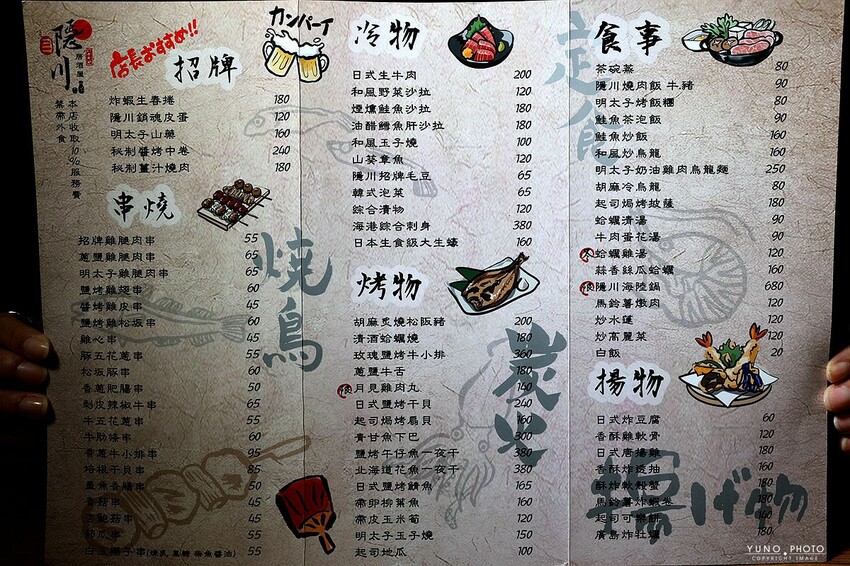 隱川
居酒屋
本店收取10%服務費
禁帶外食
店長おすすめ!!
招牌
カンパーイ
炸蝦生春捲 180
隱川鎖魂皮蛋 120
明太子山藥 160
秘制醬烤中卷 240
秘制薑汁燒肉 180
串燒
招牌雞腿肉串 55
蔥鹽雞腿肉串 65
明太子雞腿肉串 65
鹽烤雞翅串 60
醬烤雞皮串 45
鹽烤雞松坂串 60
雞心串 45
豚五花蔥串 55
松坂豚串 60
香蔥肥腸串 50
剝皮辣椒牛串 65
牛五花蔥串 55
牛肋條串 60
青蔥牛小排串 95
培根干貝串 85
墨魚香腸串 50
香菇串 45
杏鮑菇串 45
節瓜串 55
白玉糰子串 55
燒鳥
冷物
日式生牛肉 200
和風野菜沙拉 120
煙燻鮭魚沙拉 180
油醋鱈魚肝沙拉 180
和風玉子燒 100
山葵章魚 120
隱川招牌毛豆 65
韓式泡菜 65
綜合漬物 120
海港綜合刺身 380
日本生食級大生蠔 160
烤物
胡麻炙燒松阪豬 200
清酒蛤蠣燒 180
玫瑰鹽烤牛小排 360
蔥鹽牛舌 180
月見雞肉丸 140
日式鹽烤干貝 240
起司焗烤扇貝 160
青甘魚下巴 300
鹽烤午仔魚一夜干 380
北海道花魚一夜干 380
日式鹽烤鯖魚 165
帶卵柳葉魚 100
帶皮玉米筍 120
明太子玉子燒 150
起司地瓜 100
炭火
定食
食事
茶碗蒸 80
隱川燒肉飯 牛.豬 90
明太子烤飯糰 80
鮭魚茶泡飯 90
鮭魚炒飯 160
和風炒烏龍 160
明太子奶油雞肉烏龍麵 250
胡麻冷烏龍 80
起司焗烤披薩 180
蛤蠣清湯 90
牛肉蛋花湯 90
蛤蠣雞湯 120
蒜香絲瓜蛤蠣 160
隱川海陸鍋 680
馬鈴薯燉肉 120
炒水蓮 120
炒高麗菜 120
白飯 20
揚物
日式炸豆腐 60
香酥雞軟骨 120
日式唐揚雞 180
香酥炸透抽 160
酥炸軟殼蟹 180
馬鈴薯炸蝦卷 180
起司可樂餅 140
廣島炸牡蠣 180
揚げ物
YUNO.PHOTO
COPYRIGHT IMAGE